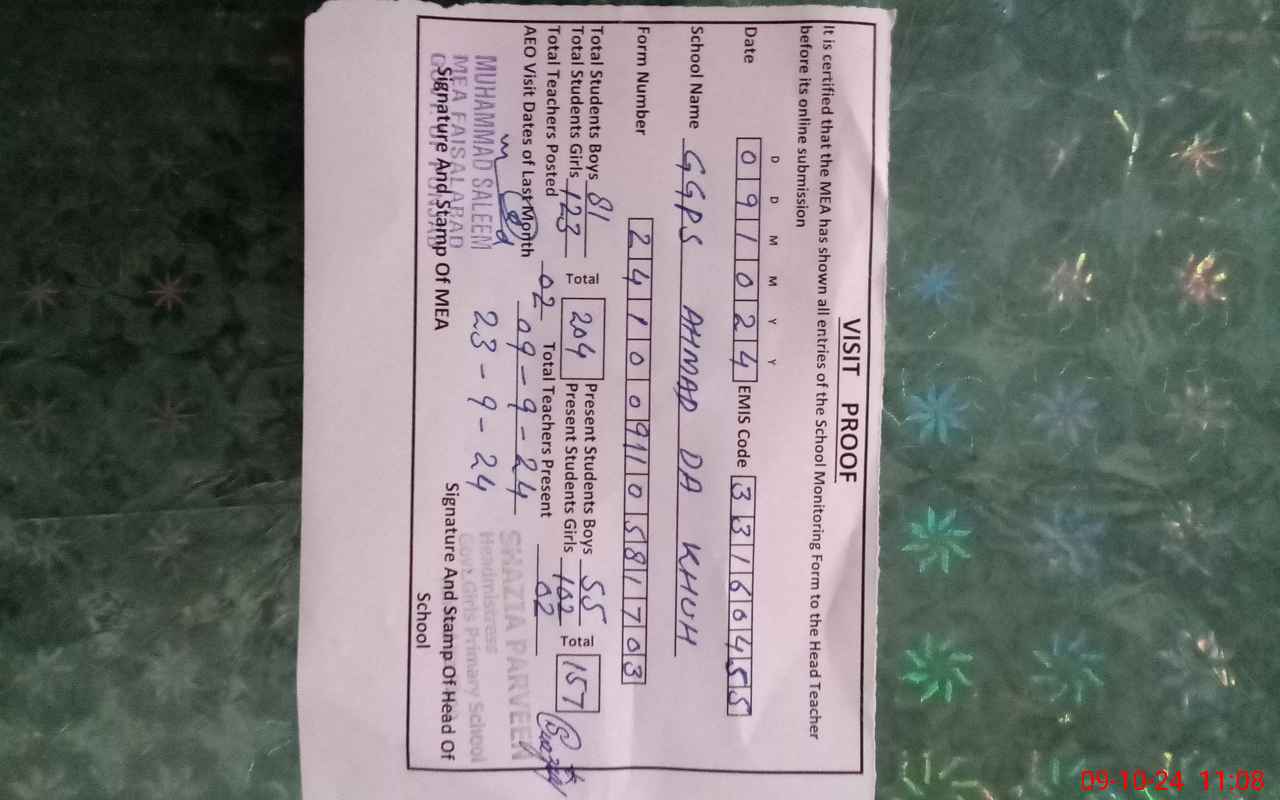 VISIT PROOF
It is certified that the MEA has shown all entries of the School Monitoring Form to the Head Teacher
before its online submission
D D M M Y Y
Date 091024 EMIS Code 33160455
School Name GGPS AHMAD DA KHUH
Form Number 24100911058 1703
Total Students Boys 81 Total 204 Present Students Boys 55 Total 157
Total Students Girls 123 Present Students Girls 102
Total Teachers Posted 02 Total Teachers Present 02
AEO Visit Dates of Last Month 09-9-24
23-9-24
MUHAMMAD SALEEM
MEA FAISALABAD
SHAZIA PARVEEN
Headmistress
Govt. Girls Primary School
Signature And Stamp Of MEA
Signature And Stamp Of Head Of
School
09-10-24 11:08